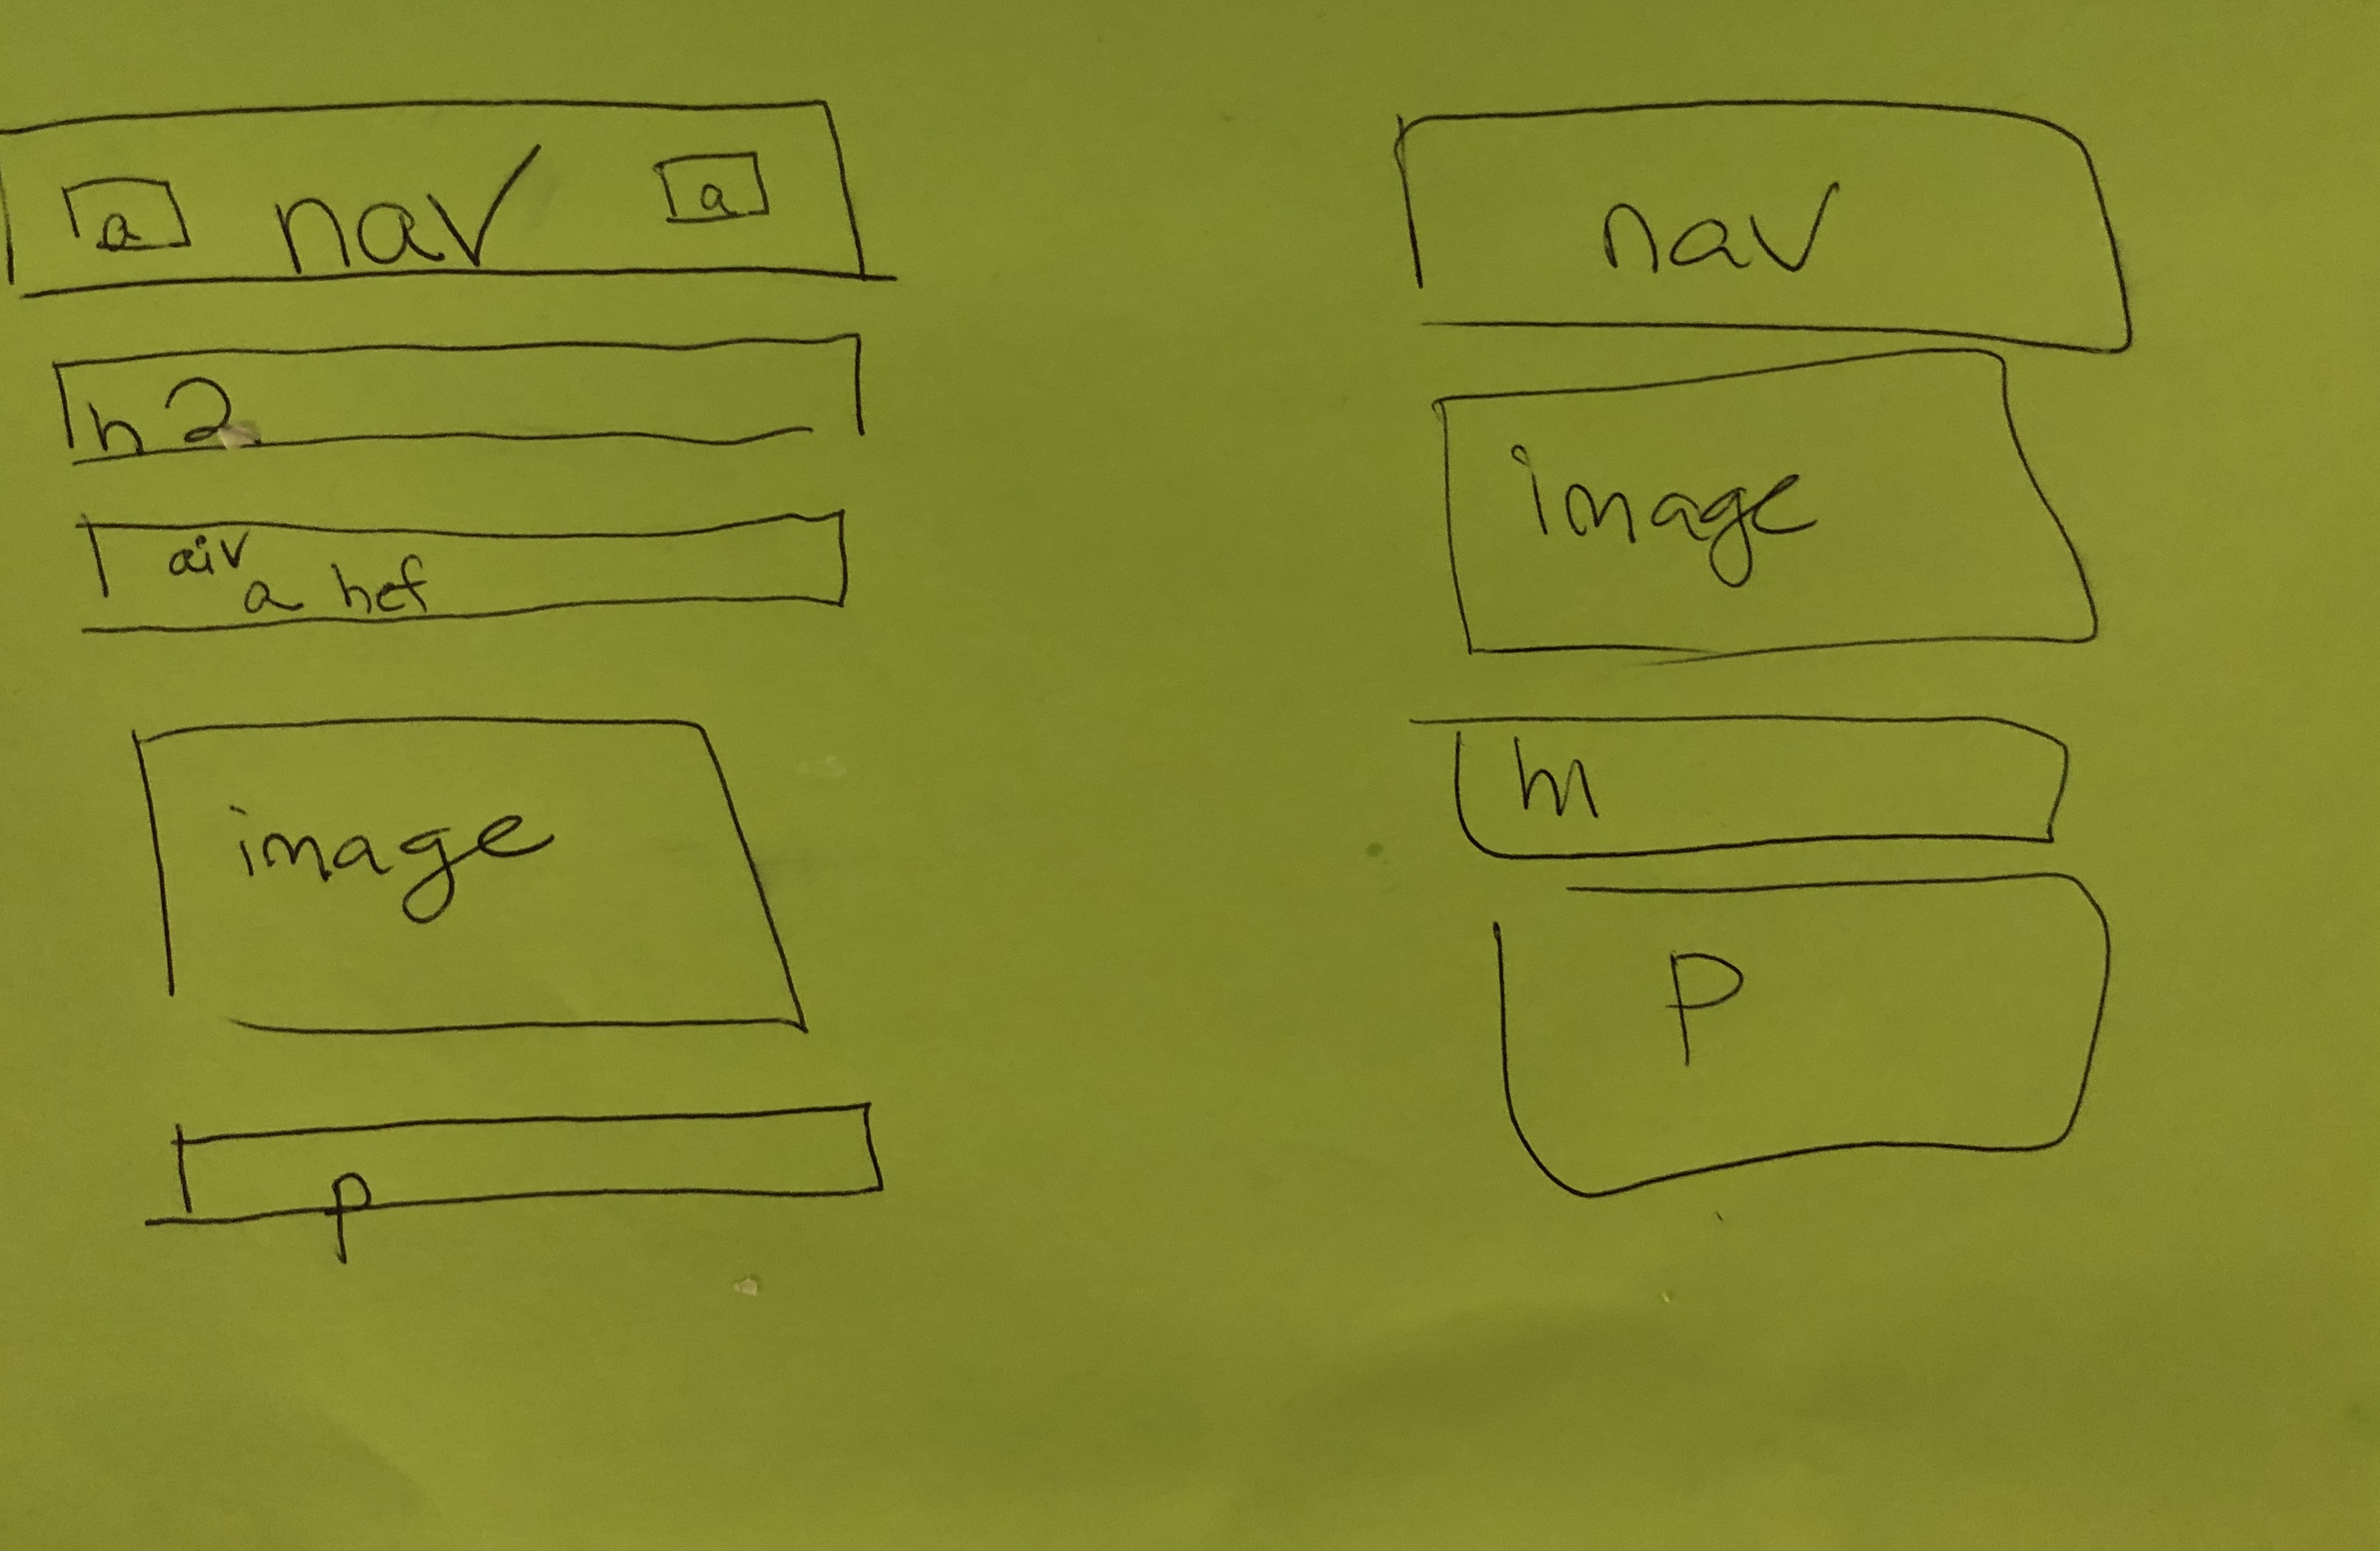 a nav a
h2
div
a hef
image
p
nav
image
h1
p